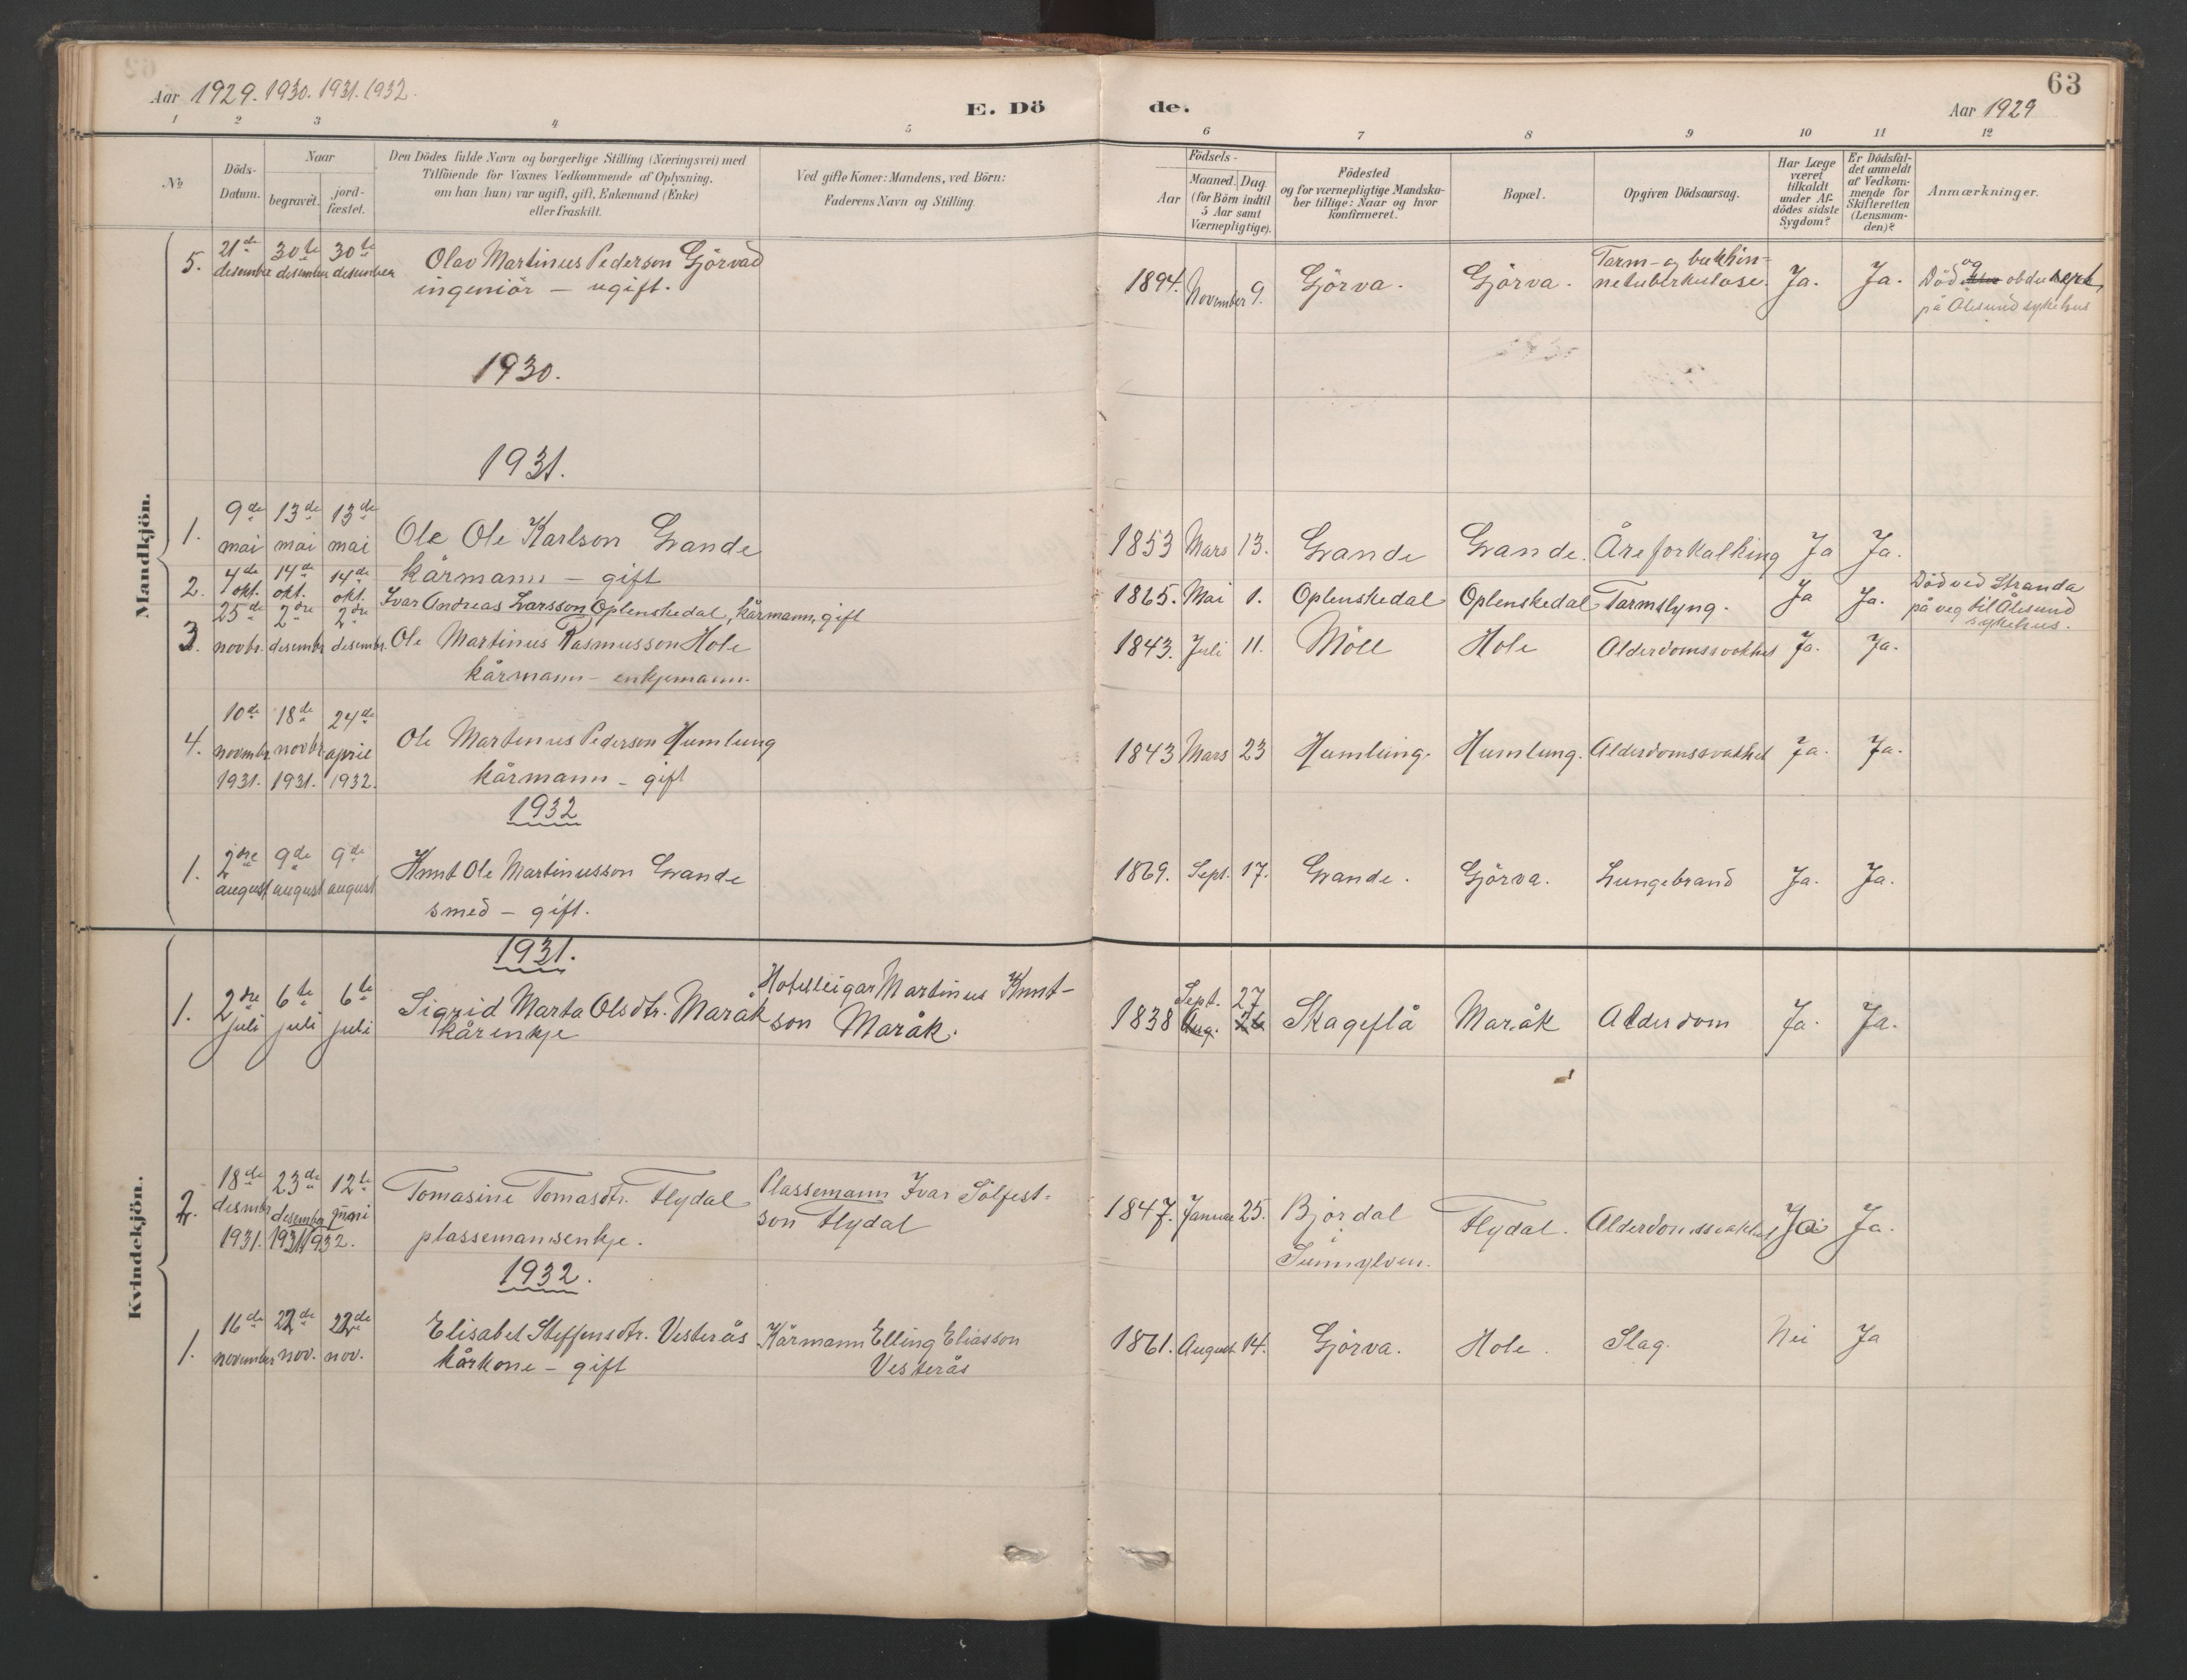 63
Aar 1929. 1930. 1931. 1932.
E. Dö de.
Aar 1929
1 2 3 4 5 6 7 8 9 10 11 12
№
Döds-
Datum.
Naar
begravet.
jord-
fæstet.
Den Dödes fulde Navn og borgerlige Stilling (Næringsvei) med
Tilföiende for Voxnes Vedkommende af Oplysning,
om han (hun) var ugift, gift, Enkemand (Enke)
eller fraskilt.
Ved gifte Koner: Mandens, ved Börn:
Faderens Navn og Stilling.
Födsels-
Aar
Maaned. Dag
(for Börn indtil
5 Aar samt
Værnepligtige).
Födested
og for værnepligtige Mandska-
ber tillige: Naar og hvor
konfirmeret.
Bopæl.
Opgiven Dödsaarsag.
Har Læge
været
tilkaldt
under Af-
dödes sidste
Sygdom?
Er Dödsfal-
det anmeldt
af Vedkom-
mende for
Skifteretten
(Lensman-
den)?
Anmærkninger.
Mandkjön.
5. 21de desember 30te desember 30te desember Olav Martinus Pederson Gjörvad
ingeniör – ugift.
1894. November 9. Gjörva. Gjörva. Tarm- og bukhin-
netuberkulose. Ja. Ja. Död og obdusert
på Ålesund sykehus
1930.
1931.
1. 9de mai 13de mai 13de mai Ole Ole Karlson Grande
kårmann – gift
1853 Mars 13. Grande Grande. Åreforkalking Ja Ja.
2. 4de okt. 14de okt. 14de okt. Ivar Andreas Larsson Oplenskedal, kårmann, gift
1865. Mai 1. Oplenskedal Oplenskedal Tarmslyng. Ja Ja. Död ved Stranda
på veg til Ålesund
sykehus.
3. 25de novbr. 2dre desembr 2dre desembr. Ole Martinus Rasmusson Hole
kårmann – enkjemann.
1843. Juli 11. Möll Hole Alderdomssvakhet Ja. Ja.
4. 10de novembr 1931. 18de novbr. 1931. 24de april 1932. Ole Martinus Pederson Humlung
kårmann – gift
1843 Mars 23 Humlung. Humlung. Alderdomssvakhet Ja. Ja.
1932
1. 2dre august 9de august 9de august Knut Ole Martinusson Grande
smed – gift.
1869. Sept. 17. Grande. Gjörva. Lungebrand Ja. Ja.
Kvindekjön.
1931.
1. 2dre juli 6te juli 6te juli Sigrid Marta Olsdtr. Maråk
kårenkje
Hotelleigar Martinus Knut-
son Maråk.
1838 Sept. 27 Aug. Skageflå Maråk Alderdom Ja. Ja.
2. 18de desmbr 1931. 23de desember 1931 12te juni 1932. Tomasine Tomasdtr. Flydal
plassemansenkje.
Plassemann Ivar Sölfest-
son Flydal
1847. Januar 25. Björdal
Sunnylven.
Flydal. Alderdomssvakhet Ja Ja.
1932.
1. 16de november 22de nov. 22de nov. Elisabet Steffensdtr. Vesterås
kårkone – gift
Kårmann Elling Eliasson
Vesterås
1861. August 14. Gjörva. Hole. Slag. Nei Ja